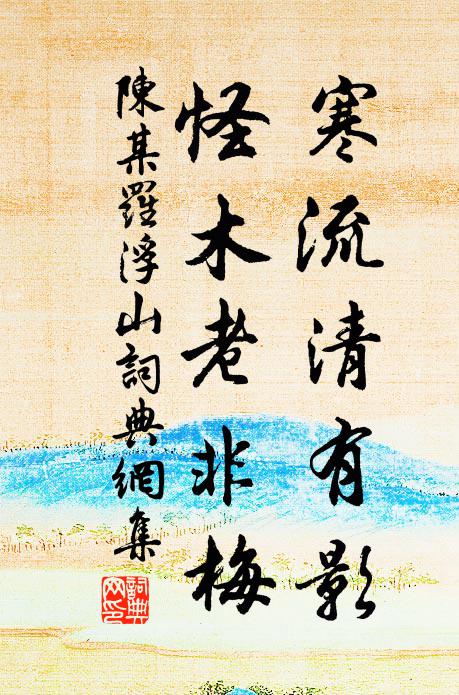 寒流清有影
怪木老非梅
陳某羅浮山詞典網集
詞典網印